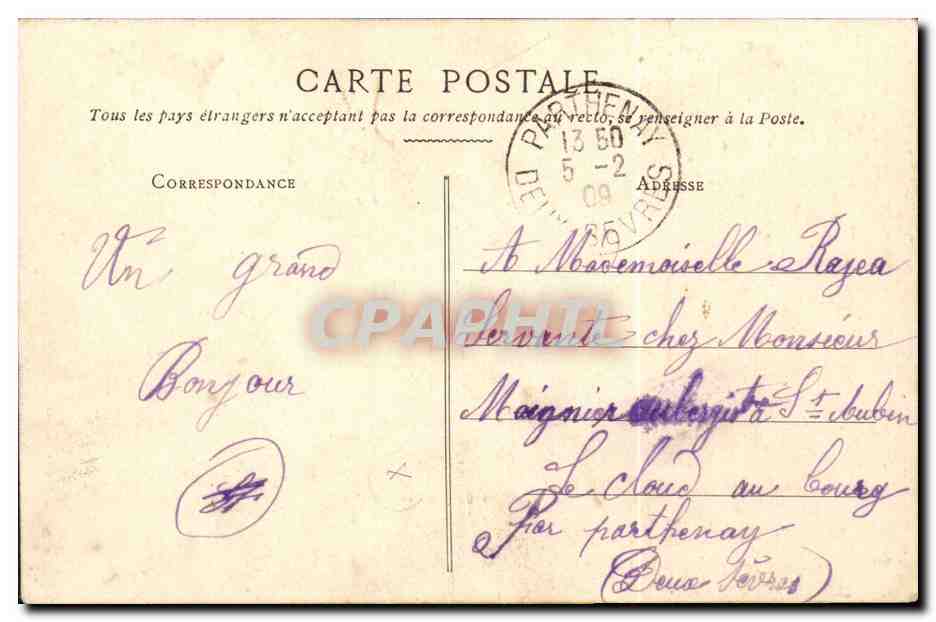 CARTE POSTALE
Tous les pays étrangers n'acceptent pas la correspondance au recto, se renseigner à la Poste.
PARTHENAY
13 50
5 -2
09
DEUX SEVRES
CORRESPONDANCE
ADRESSE
Un grand
Bonjour
A Mademoiselle
Servante chez Monsieur
Meignier aubergiste à St Aubin
Le Cloud au bourg
Par parthenay
(Deux Sèvres)
CPAPHIL